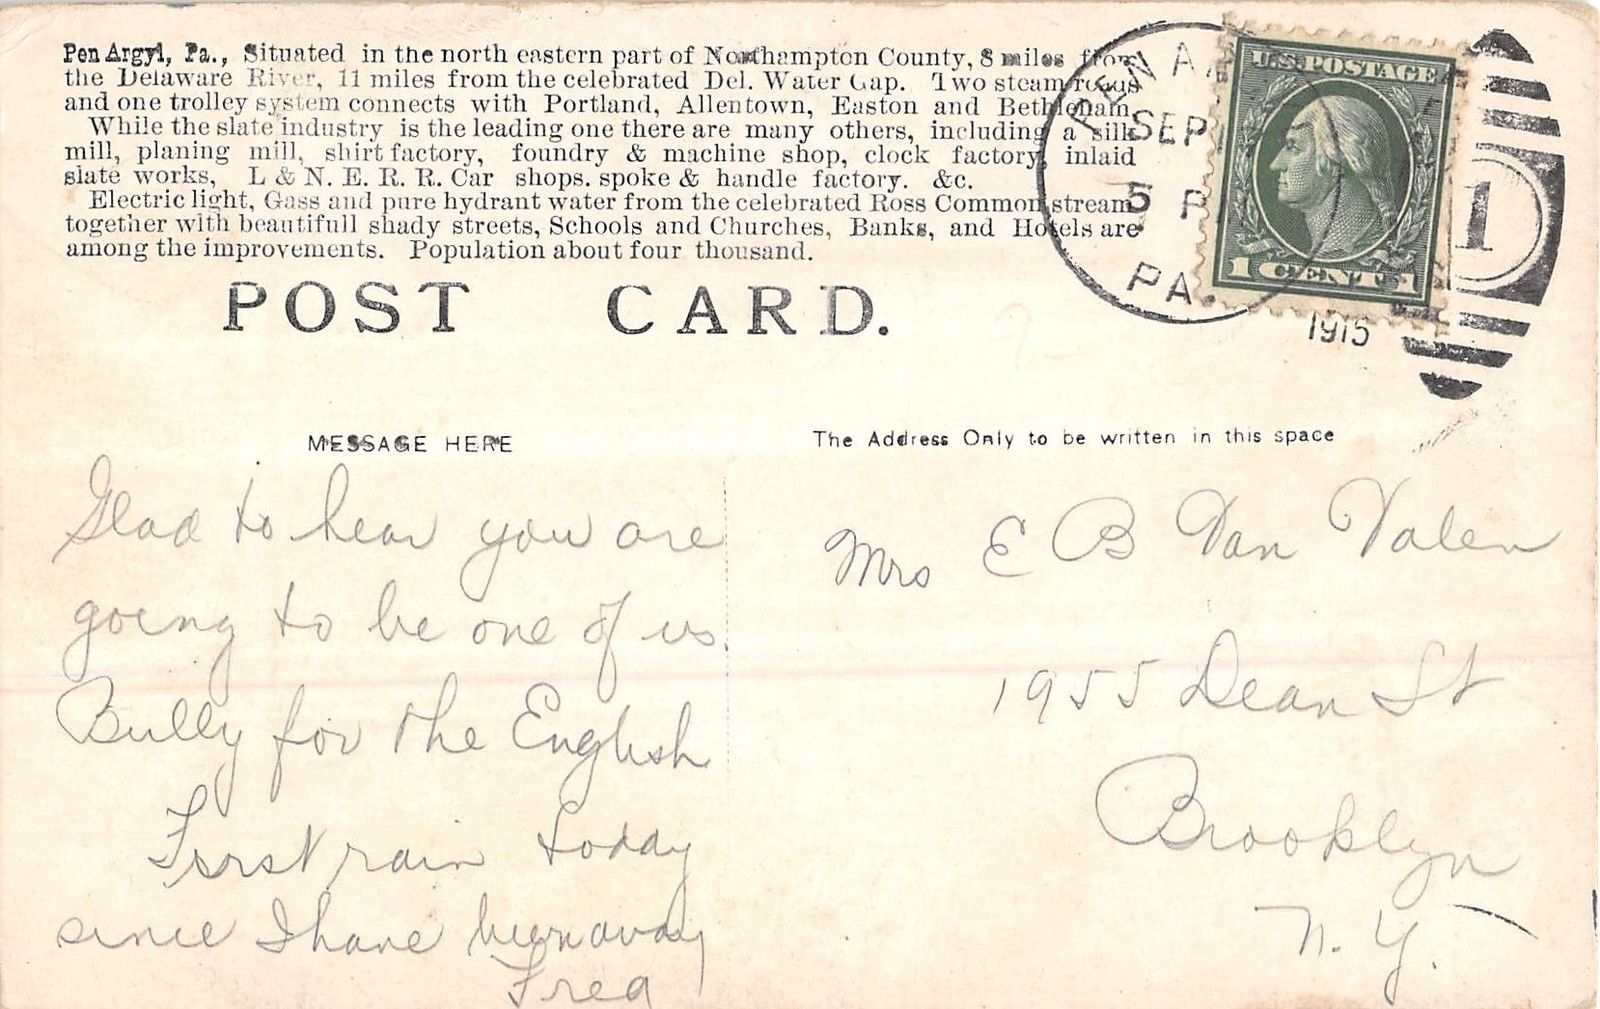 Pen Argyl, Pa., Situated in the north eastern part of Northampton County, 8 miles from
the Delaware River, 11 miles from the celebrated Del. Water Gap. Two steam roads
and one trolley system connects with Portland, Allentown, Easton and Bethleham.
While the slate industry is the leading one there are many others, including a silk
mill, planing mill, shirt factory, foundry & machine shop, clock factory, inlaid
slate works, L & N. E. R. R. Car shops. spoke & handle factory. &c.
Electric light, Gass and pure hydrant water from the celebrated Ross Common stream
together with beautifull shady streets, Schools and Churches, Banks, and Hotels are
among the improvements. Population about four thousand.
PEN A
SEP
5 P
PA.
1915
U.S. POSTAGE
1 CENT 1
1
POST CARD.
MESSAGE HERE
The Address Only to be written in this space
Glad to hear you are
going to be one of us
Bully for the English
First rain today
since I have been away
Fred
Mrs E B Van Valen
1955 Dean St
Brooklyn
N. Y.